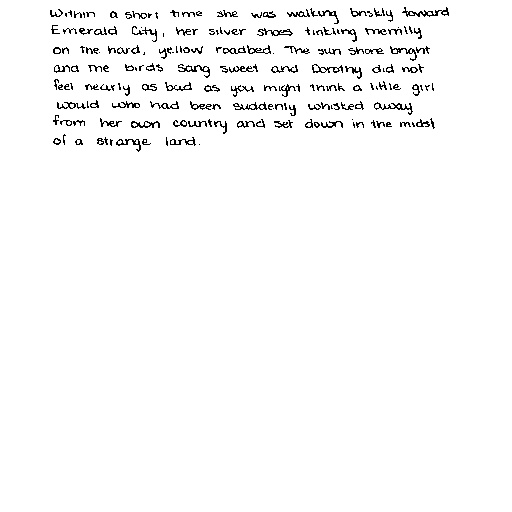 Within a short time she was walking briskly toward
Emerald City, her silver shoes tinkling merrily
on the hard, yellow roadbed. The sun shone bright
and the birds sang sweet and Dorothy did not
feel nearly as bad as you might think a little girl
would who had been suddenly whisked away
from her own country and set down in the midst
of a strange land.